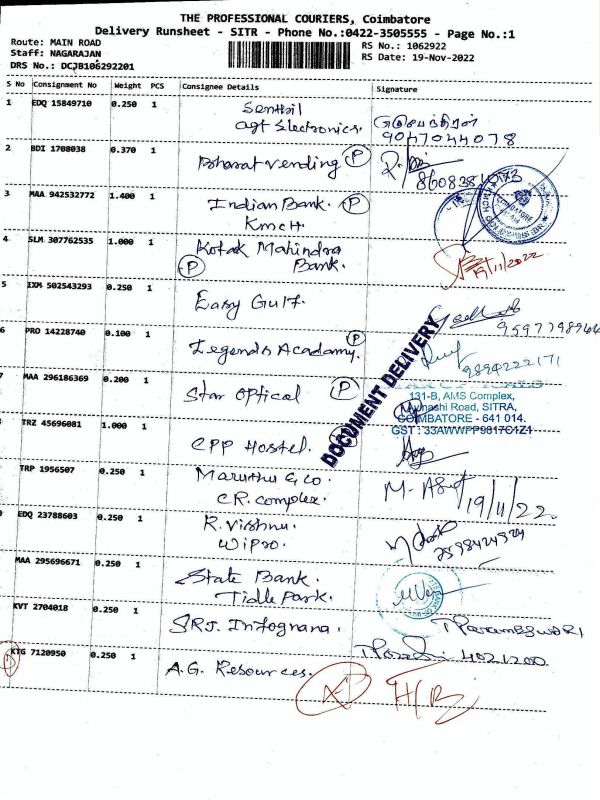 THE PROFESSIONAL COURIERS, Coimbatore
Delivery Runsheet - SITR - Phone No.:0422-3505555 - Page No.:1
Route: MAIN ROAD
Staff: NAGARAJAN
DRS No.: DCJB106292201
RS No.: 1062922
RS Date: 19-Nov-2022
S No Consignment No Weight PCS Consignee Details Signature
1 EDQ 15849710 0.250 1 Senthil
agt Electronics. 9047044078
2 BDI 1708038 0.370 1 Bharat vending P
3 MAA 942532772 1.400 1 Indian Bank. P
KMCH.
4 SLM 307762535 1.000 1 Kotak Mahindra
P Bank. 19/11/2022
5 IXM 502543293 0.250 1 Easy Gulf.
6 PRO 14228740 0.100 1 Legends Acadamy. P
9894222171
7 MAA 296186369 0.200 1 Star Optical P
DOCUMENT DELIVERY
131-B, AMS Complex,
Road, SITRA,
COIMBATORE - 641 014.
GST : 33AWWPP9817C1Z1
TRZ 45696081 1.000 1 CPP Hostel.
TRP 1956507 0.250 1 Maruthu & Co
C.R. complex. 19/11/22.
EDQ 23788603 0.250 1 R. Vishnu.
Wipro.
MAA 295696671 0.250 1 State Bank.
Tidle Park.
KVT 2704018 0.250 1 SRJ. Infognana.
KTG 7120950 0.250 1 A.G. Resources.
4021200